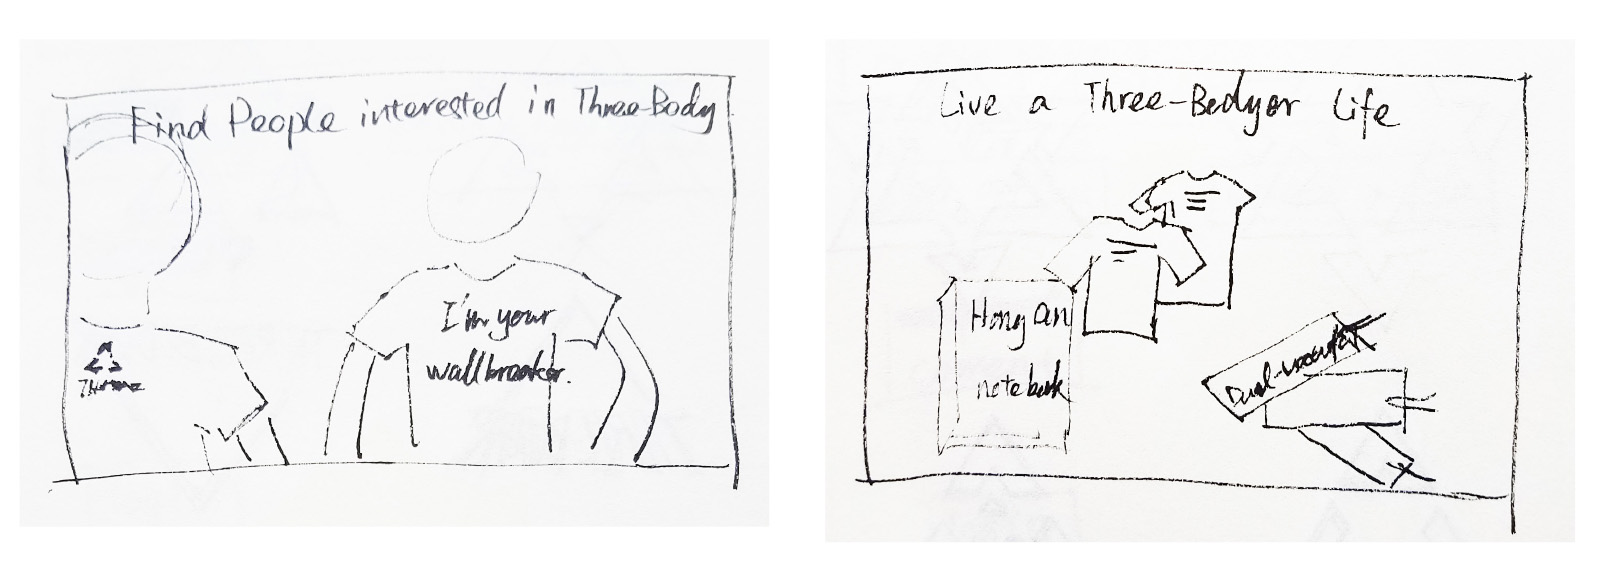 Find People interested in Three-Body
I'm your
wallbreaker.
Live a Three-Bodyer Life
Hong an
notebook